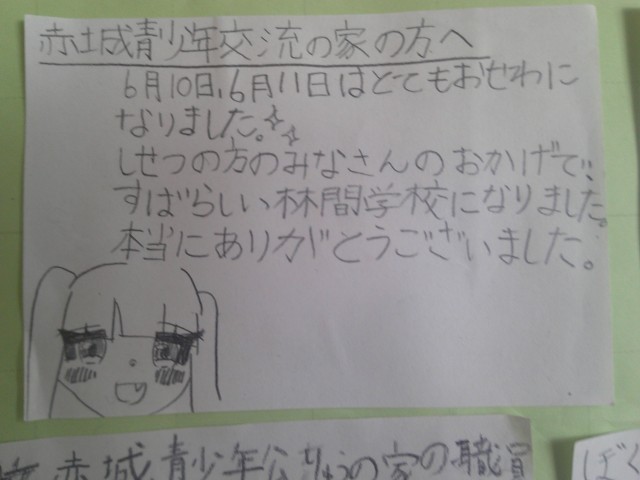 赤城青少年交流の家の方へ
6月10日、6月11日はとてもおせわに
なりました。
しせつの方のみなさんのおかげで、
すばらしい林間学校になりました。
本当にありがとうございました。
赤城青少年公りゅうの家の職員
ぼく